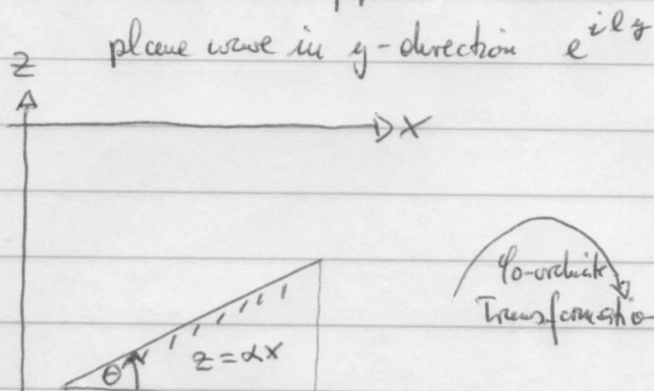 plane wave in y-direction e^{ily}
Z
X
Co-ordinate
Transformatio
z = αx
θ